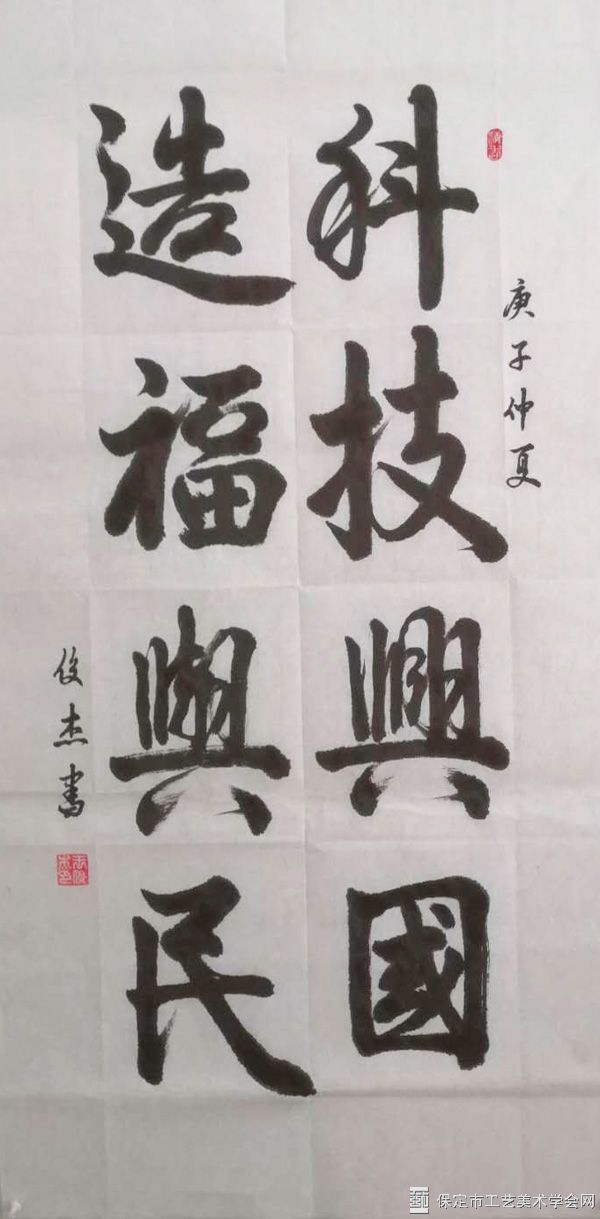 庚子仲夏
科技興國
造福與民
俊杰書
保定市工艺美术学会网